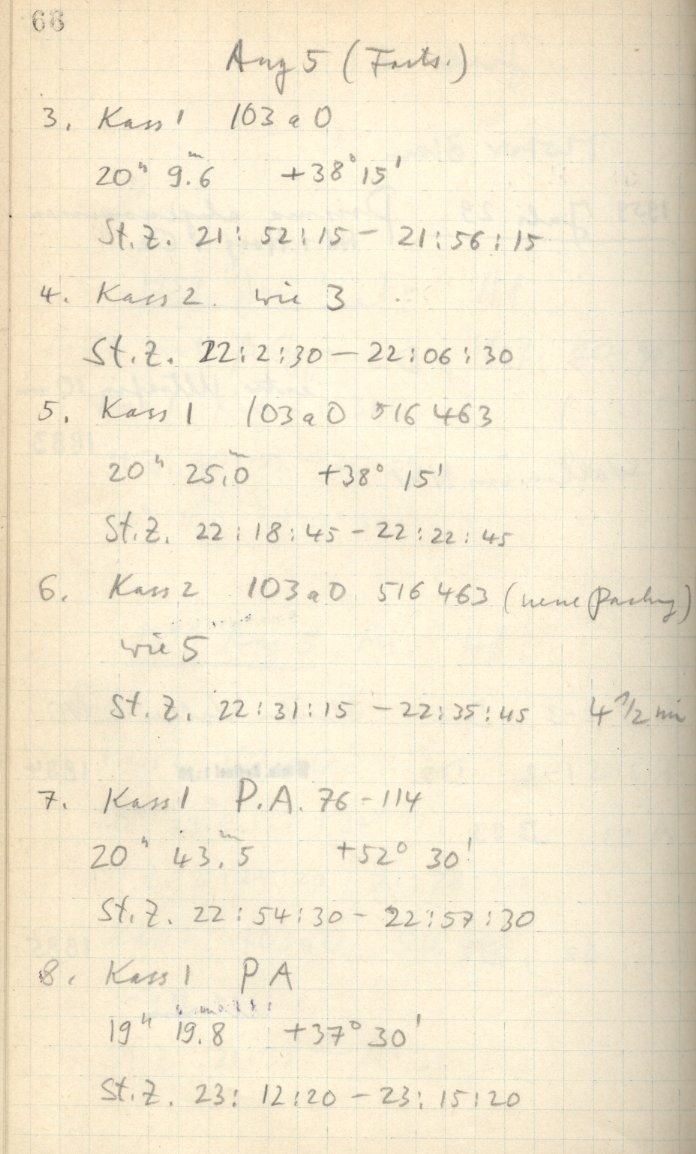 66
Aug 5 (Forts.)
3. Kass 1 103aO
20ʰ 9ᵐ.6 +38°15'
St.Z. 21:52:15 – 21:56:15
4. Kass 2. wie 3
St.Z. 22:2:30 – 22:06:30
5. Kass 1 103aO 516 463
20ʰ 25ᵐ.0 +38° 15'
St.Z. 22:18:45 – 22:22:45
6. Kass 2 103aO 516 463 (neue Packung)
wie 5
St.Z. 22:31:15 – 22:35:45 4 1/2 min
7. Kass 1 P.A. 76-114
20ʰ 43ᵐ.5 +52° 30'
St.Z. 22:54:30 – 22:57:30
8. Kass 1 PA
19ʰ 19.8 +37° 30'
St.Z. 23: 12:20 – 23:15:20